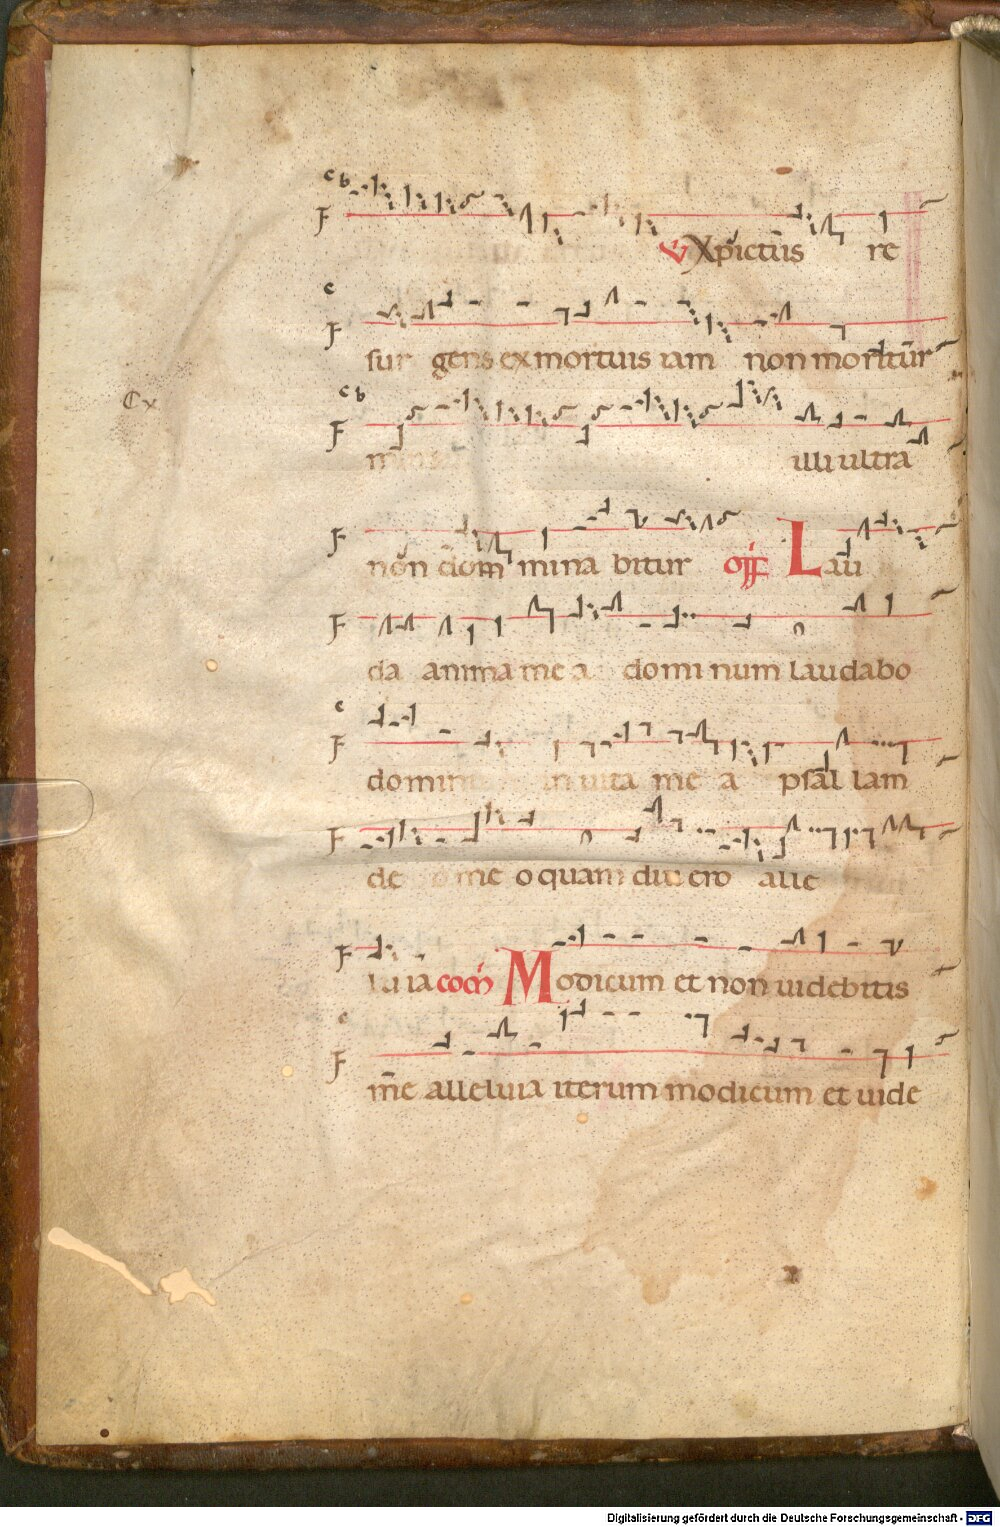 c b
F
V Xpictus re
c
F
sur gens ex mortuis iam non moritur
Cx
c b
F
illi ultra
F
non dom mina bitur off Lau
F
da anima me a domi num laudabo
c
F
domin in uita me a psal lam
F
de o me o quam diu ero alle
F
lu ia com Modicum et non uidebitis
c
F
me alleluia iterum modicum et uide
Digitalisierung gefördert durch die Deutsche Forschungsgemeinschaft - DFG